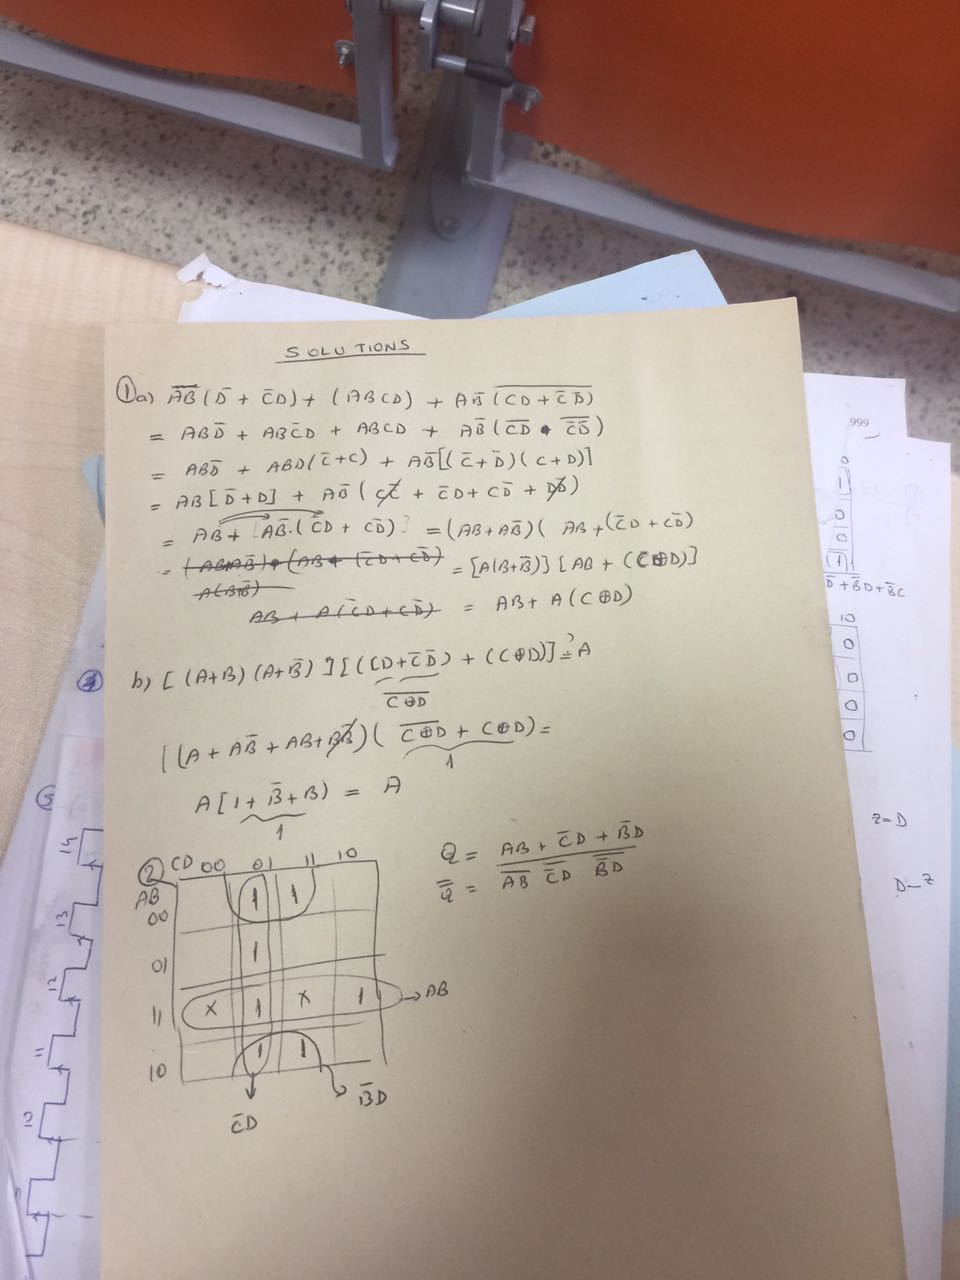 SOLUTIONS
① a) A̅B̅ (D̅ + C̅D) + (ABCD) + AB̅ (C̅D̅ ̅+̅ ̅C̅D̅)
= ABD̅ + ABC̅D + ABCD + AB̅ (C̅D̅ • C̅D̅)
= ABD̅ + ABD(C̅+C) + AB̅[(C̅+D̅)(C+D)]
= AB[D̅+D] + AB̅ (CC̅ + C̅D + CD̅ + DD̅)
= AB + [AB̅.(C̅D + CD̅)] = (AB+AB̅)( AB+(C̅D+CD̅)
= (ABAB̅)•(AB+(C̅D+CD̅) = [A(B+B̅)][AB + (C⊕D)]
A(BB̅)
AB + A(C̅D+CD̅) = AB + A(C⊕D)
b) [(A+B)(A+B̅)][(CD+C̅D̅) + (C⊕D)] ?= A
C̅⊕̅D̅
[(A + AB̅ + AB + BB̅)( C̅⊕̅D̅ + C⊕D) =
1
A[1 + B̅ + B) = A
1
② CD 00 01 11 10
AB
00 1 1
01 1
11 x 1 x 1 → AB
10 1 1
C̅D
B̅D
Q = AB + C̅D + B̅D
Q̅ = A̅B̅ C̅D̅ B̅D̅
999
0
1
0
0
(1)
D̅+B̅D+B̅C
10
0
0
0
0
z=D
D-z
③
14
13
12
11